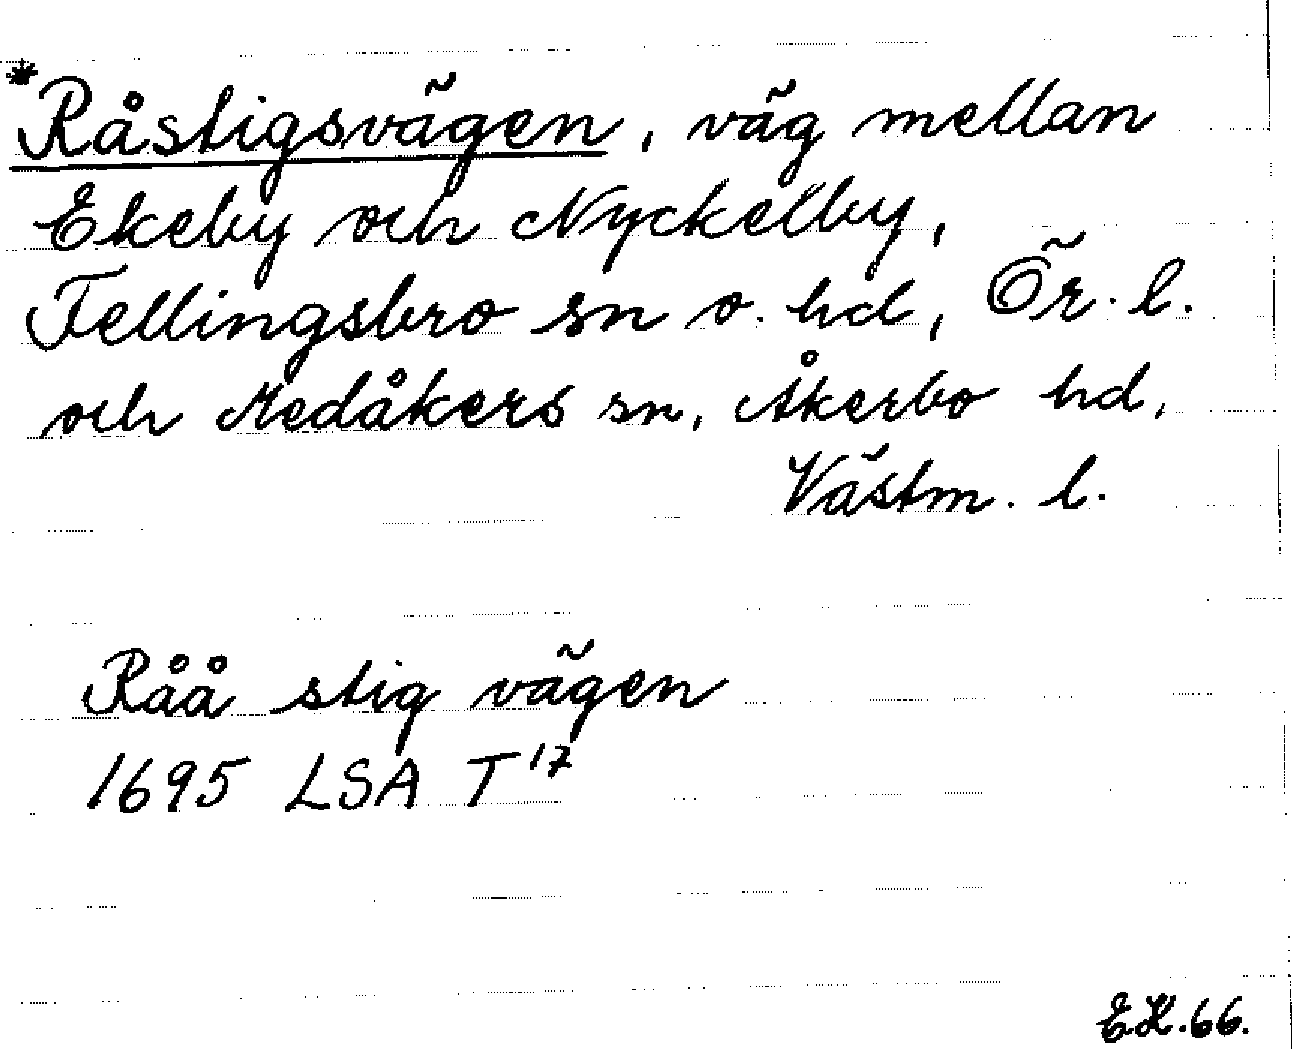 *Råstigsvägen, väg mellan
Ekeby och Nyckelby,
Fellingsbro sn o. hd, Ör. l.
och Medåkers sn, Åkerbo hd,
Västm. l.
Råå stig vägen
1695 LSA T¹⁷
E.K.66.